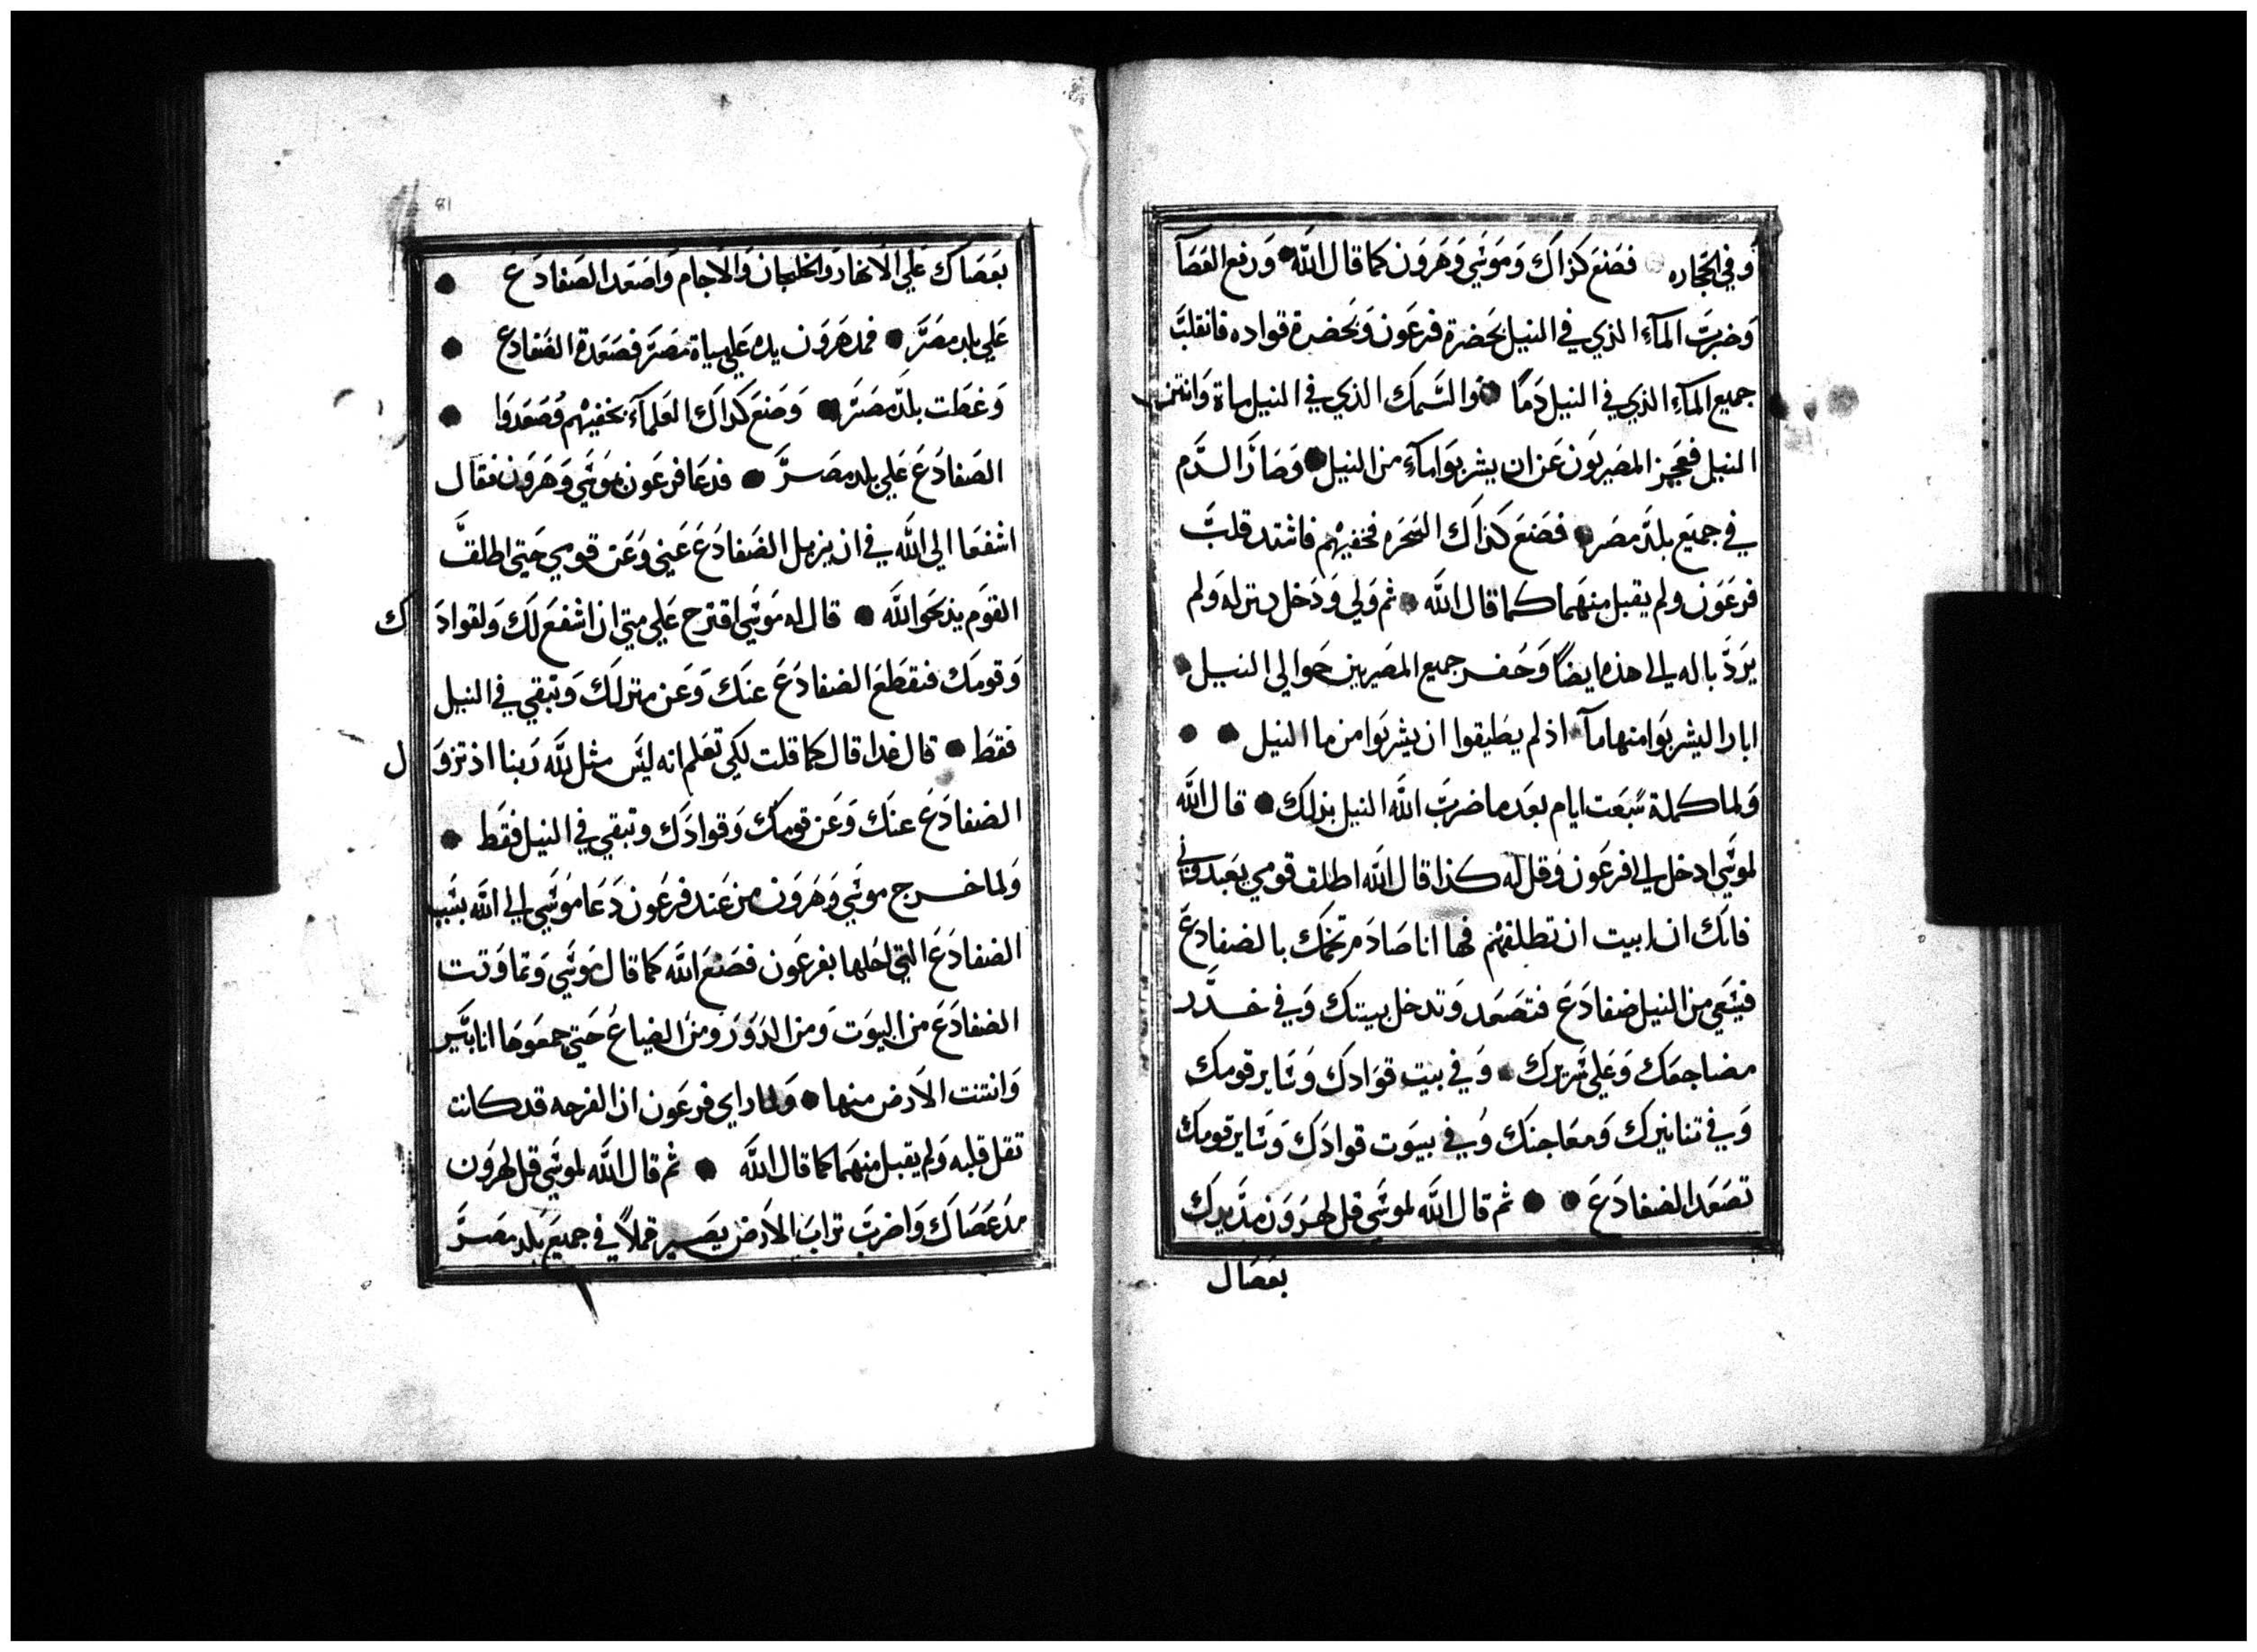 وفي الحجاره ۝ فصنع كذاك وموسي وهرون كما قال الله ● ورفع العصآ
وضربت المآء الذي في النيل بحضرة فرعون وبحضرة قواده فانقلبت
جميع المآء الذي في النيل دمًا ● والسمك الذي في النيل مات وانتن
النيل فعجز المصريون عن ان يشربوا مآء من النيل ● وصار الدم
في جميع بلد مصر ● فصنع كذاك السحره فخفيهم فاشتد قلب
فرعون ولم يقبل منهما كما قال الله ● ثم ولي ودخل منزله ولم
يرد باله الي هذه ايضًا وحفر جميع المصريين حوالي النيل ●
ابارا ليشربوا منها مآ ● اذ لم يطيقوا ان يشربوا من ما النيل ● ●
ولما كملة سبعت ايام بعد ما ضرب الله النيل بذلك ● قال الله
لموسي ادخل الي فرعون وقل له كذا قال الله اطلق قومي يعبدوني
فانك ان ابيت ان تطلقهم فها انا صادم تخمك بالضفادع
فيسعي من النيل ضفادع فتصعد وتدخل بيتك وفي خدر
مضاجعك وعلي سريرك ● وفي بيت قوادك وساير قومك
وفي تنانيرك ومعاجنك وفي بيوت قوادك وساير قومك
تصعد الضفادع ● ● ثم قال الله لموسي قل لهرون مد يدك
بعصاك
81
بعصاك علي الانهار والخلجان والاجام واصعد الضفادع ●
علي بلد مصر ● فمد هرون يده علي مياة مصر فصعدة الضفادع ●
وغطت بلد مصر ● وصنع كذاك العلمآء بخفيهم وصعدوا ●
الضفادع علي بلد مصر ● فدعا فرعون بموسي وهرون فقال
اشفعا الي الله في ان يزيل الضفادع عني وعن قومي حتي اطلق
القوم يذبحوا لله ● قال له موسي اقترح علي متي ان اشفع لك ولقوادك
وقومك فنقطع الضفادع عنك وعن منزلك وتبقي في النيل
فقط ● قال غدا قال كما قلت لكي تعلم انه ليس مثل الله ربنا اذ تزول
الضفادع عنك وعن قومك وقوادك وتبقي في النيل فقط ●
ولما خرج موسي وهرون من عند فرعون دعا موسي الي الله بسبب
الضفادع التي احلها بفرعون فصنع الله كما قال موسي وتماوتت
الضفادع من البيوت ومن الدور ومن الضياع حتي جمعوها انابير
وانتنت الارض منها ● ولما راي فرعون ان الفرجه قد كانت
تقل قلبه ولم يقبل منهما كما قال الله ● ثم قال الله لموسي قل لهرون
مد عصاك واضرب تراب الارض يصير قملاً في جميع بلد مصر